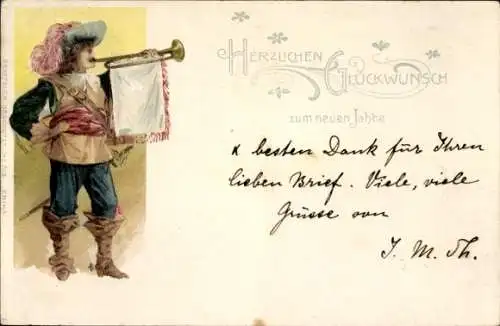 Herzlichen
Glückwunsch
zum neuen Jahre
& besten Dank für Ihren
lieben Brief. Viele, viele
Grüsse von
J. M. Th.